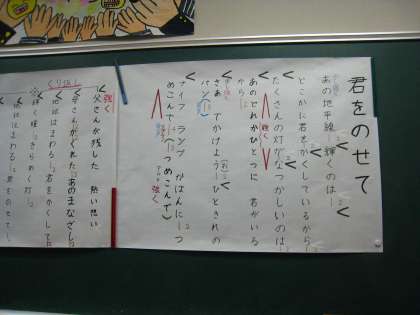 君をのせて
あの地平線ー 輝くのはー
どこかに君をかくしているからー
たくさんの灯がなつかしいのはー
あのどれかひとつに 君がいる
から
さあ でかけよう ひときれの
パン
ナイフ ランプ かばんに つ
めこんで(つめこんで)
強く
くり返し
強く
父さんが残した 熱い想い
母さんがくれた あのまなざし
地球はまわる 君をかくして
輝く瞳 きらめく灯
地球はまわる 君をのせて